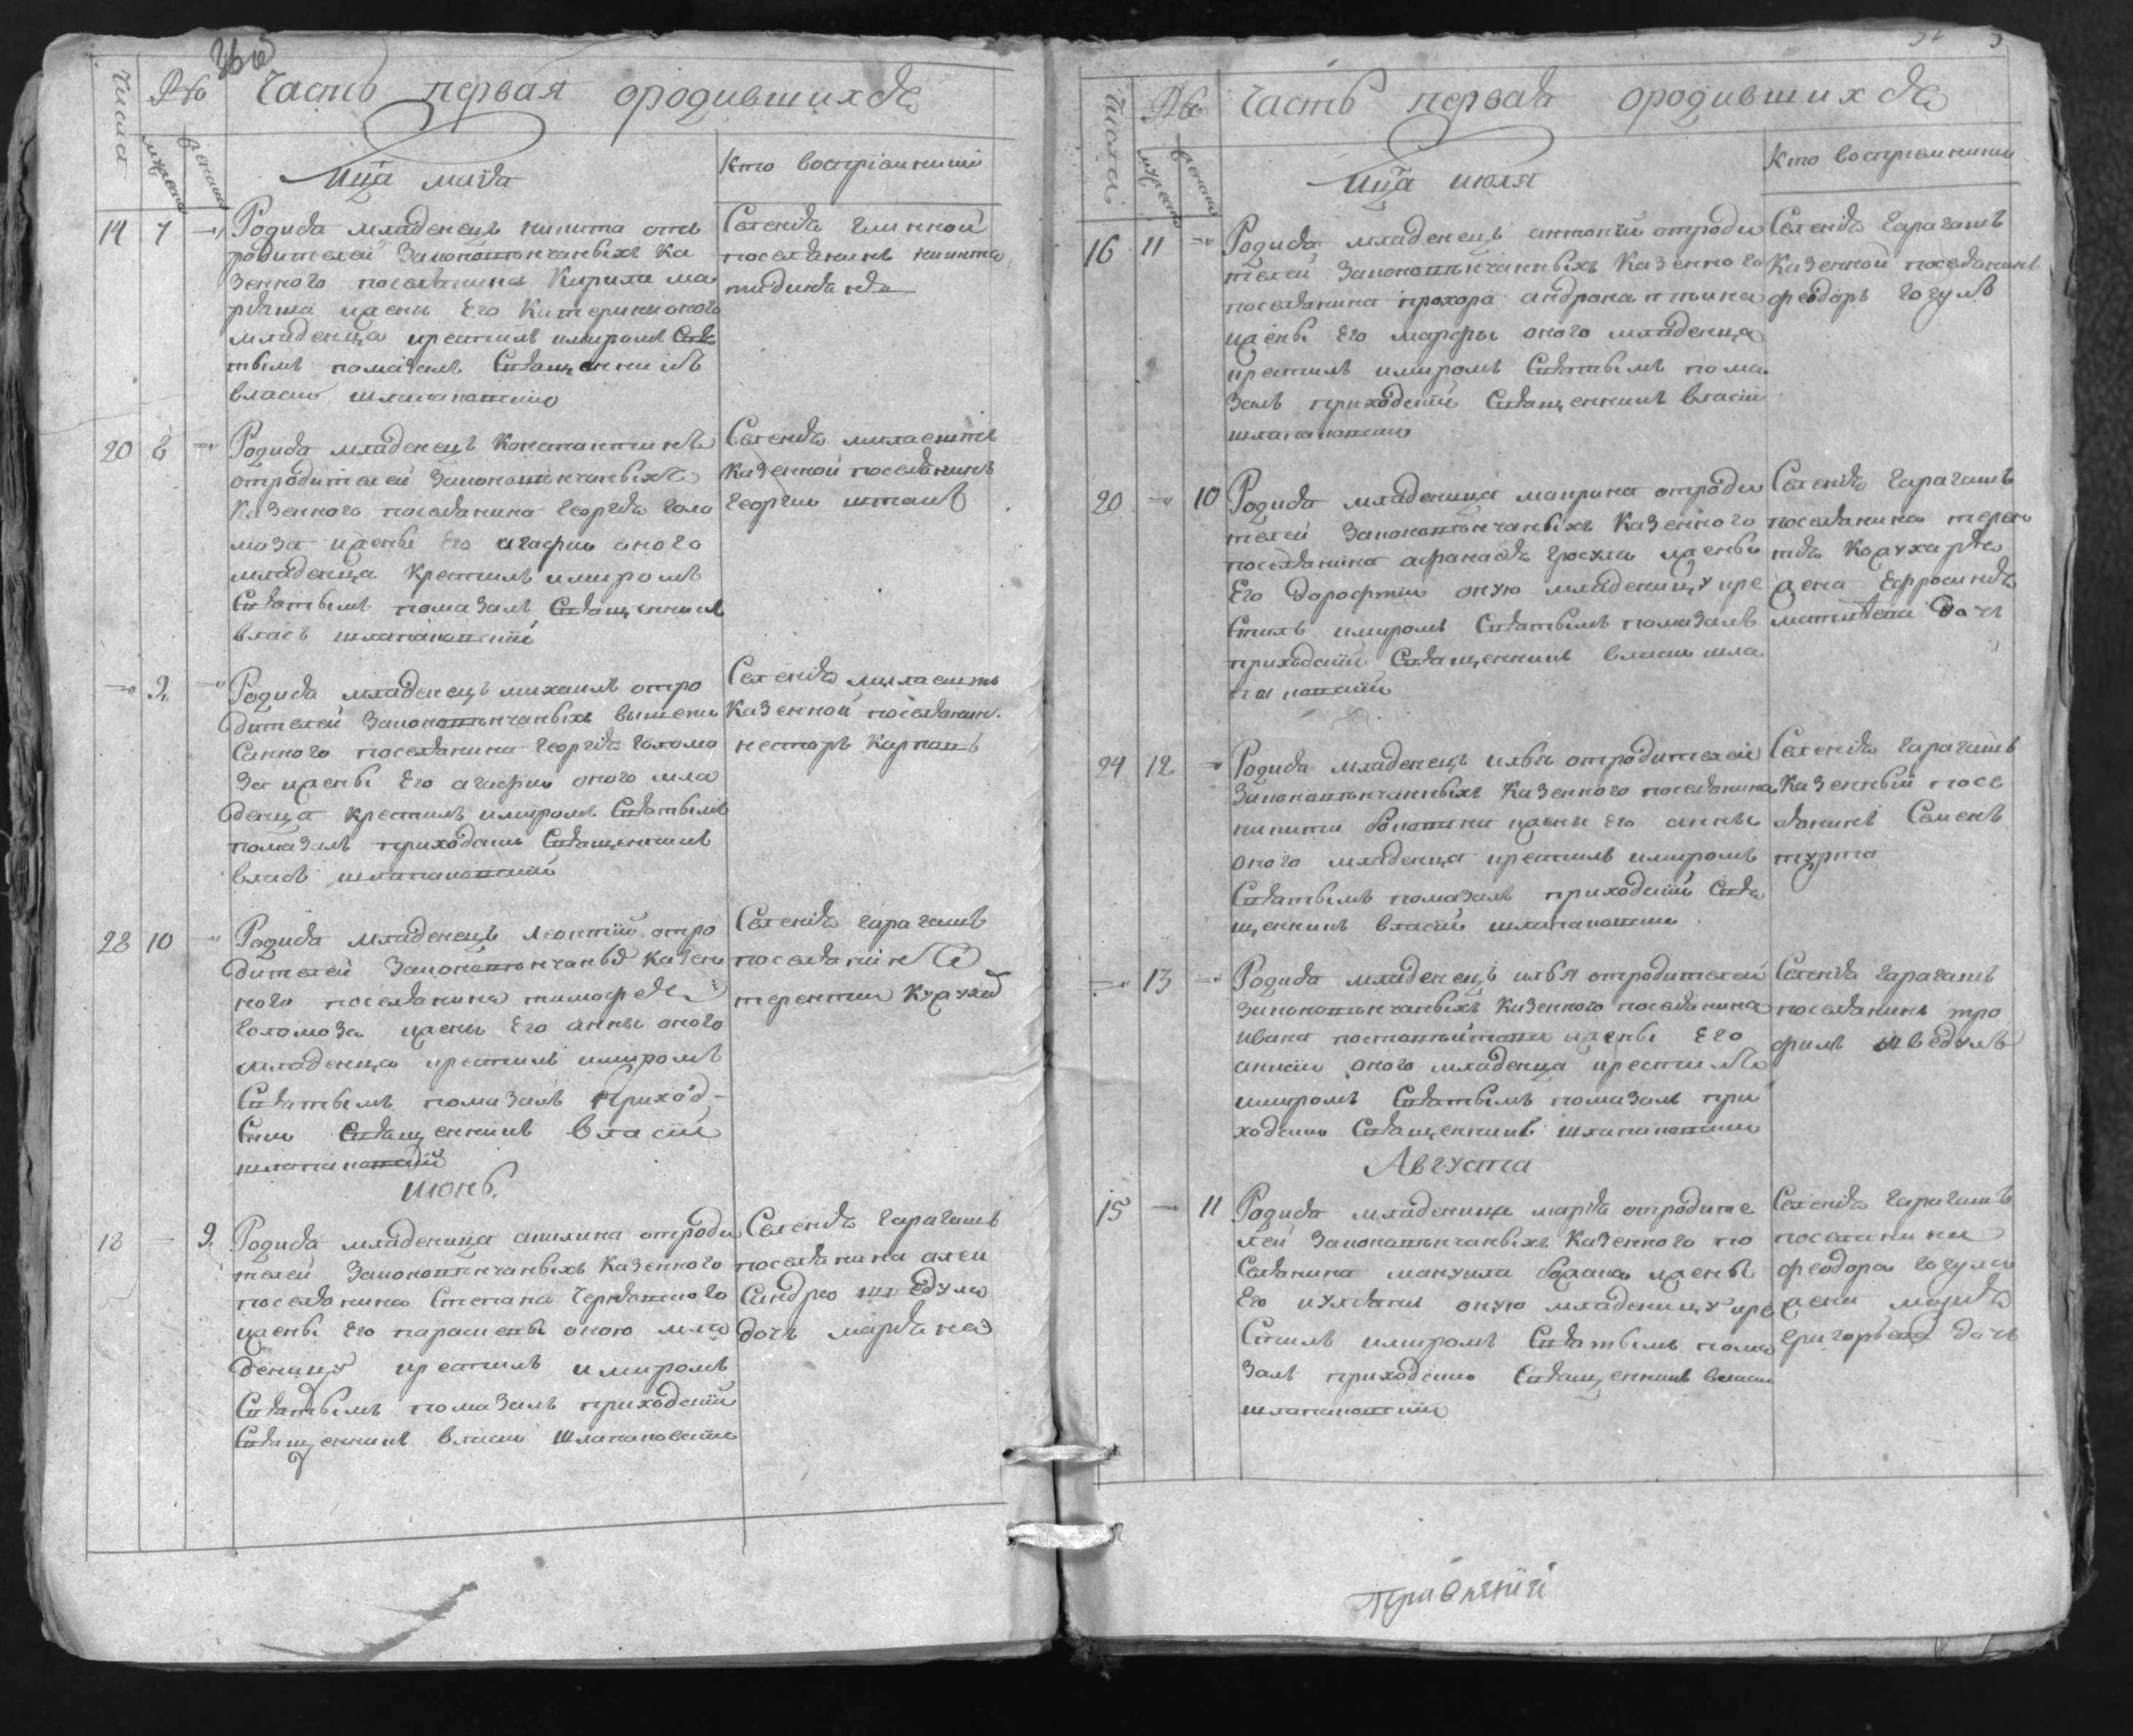 Числа
№
Часть первая ородившихся
мужеска
женска
Мца маия
Кто воспріемники
14 7 Родися младенецъ никита отъ
родителей Законовѣнчаныхъ Ка
зенного поселянина Кирила
жены Его Катерины оного
младенца крестилъ имиромъ Свя
тымъ помазалъ Священникъ
власій шлапаковскій
Селенія глинной
поселянинъ никита
20 8 Родися младенецъ Константинъ
отродителей Законовѣнчаныхъ
Казенного поселянина Георгія Голо
моза жены Его агафіи оного
младенца Крестилъ имиромъ
Святымъ помазалъ Священникъ
власъ шлапаковскій
Селенія милаештъ
Казенной поселянинъ
Георгій
9 Родися младенецъ михаилъ отро
дителей Законовѣнчаныхъ вышепи
санного поселянина Георгія Голомо
за жены Его агафіи оного мла
денца крестилъ имиромъ Святымъ
помазалъ приходскій Священникъ
власъ шлапаковскій
Селенія милаештъ
Казенной поселянин.
несторъ
28 10 Родися младенецъ леонтій отро
дителей Законовѣнчаныхъ Казен
ного поселянина тимофея
Голомоза жены Его анны оного
младенца крестилъ имиромъ
Святымъ помазалъ Приход-
скій Священникъ власій
шлапаковскій
Селенія Гарагашъ
поселянинъ
терентій
июнь.
18 9 Родися младеница акилина отроди
телей Законовѣнчаныхъ Казенного
поселянина Степана
жены Его параскевы оною мла
деницу крестилъ имиромъ
Святымъ помазалъ приходскій
Священникъ власій Шлапаковскій
Селенія Гарагашъ
поселянина алек
сандра шведула
дочь марияна
Числа
№
Часть первая ородившихся
мужеска
женска
Мца июля
Кто воспріемники
16 11 Родися младенецъ антоній отроди
телей Законовѣнчанныхъ Казенного
поселянина прохора
жены Его марфы оного младенца
крестилъ имиромъ Святымъ пома
залъ приходскій Священникъ власій
шлапаковскій
Селенія Гарагашъ
Казенной поселянинъ
феодоръ Гогулъ
20 10 Родися младеница маирина отроди
телей Законовѣнчаныхъ Казенного
поселянина афанасія жены
Его Дорофтии оную младеницу кре
стилъ имиромъ Святымъ помазалъ
приходскій Священникъ власій шла
паковскій
Селенія Гарагашъ
поселянина терен
тія
жена Ефросинія
матвѣева дочь
24 12 Родися младенецъ илья отродителей
Законовѣнчанныхъ Казенного поселянина
никиты жены Его анны
оного младенца крестилъ имиромъ
Святымъ помазалъ приходскій Свя
щенникъ власій шлапаковскій
Селенія Гарагашъ
Казенный посе
лянинъ Семенъ
турта
13 Родися младенецъ илья отродителей
Законовѣнчаныхъ Казенного поселянина
ивана жены Его
оного младенца крестилъ
имиромъ Святымъ помазалъ при
ходскій Священникъ шлапаковскій
Селенія Гарагашъ
поселянинъ тро
фимъ шведулъ
Августа
15 11 Родися младеница марія отродите
лей Законовѣнчаныхъ Казенного по
селянина мануила жены
Его оную младеницу кре
стилъ имиромъ Святымъ пома
залъ приходскій Священникъ власій
шлапаковскій
Селенія Гарагашъ
поселянина
феодора Гогула
жена марія
григорьева дочь